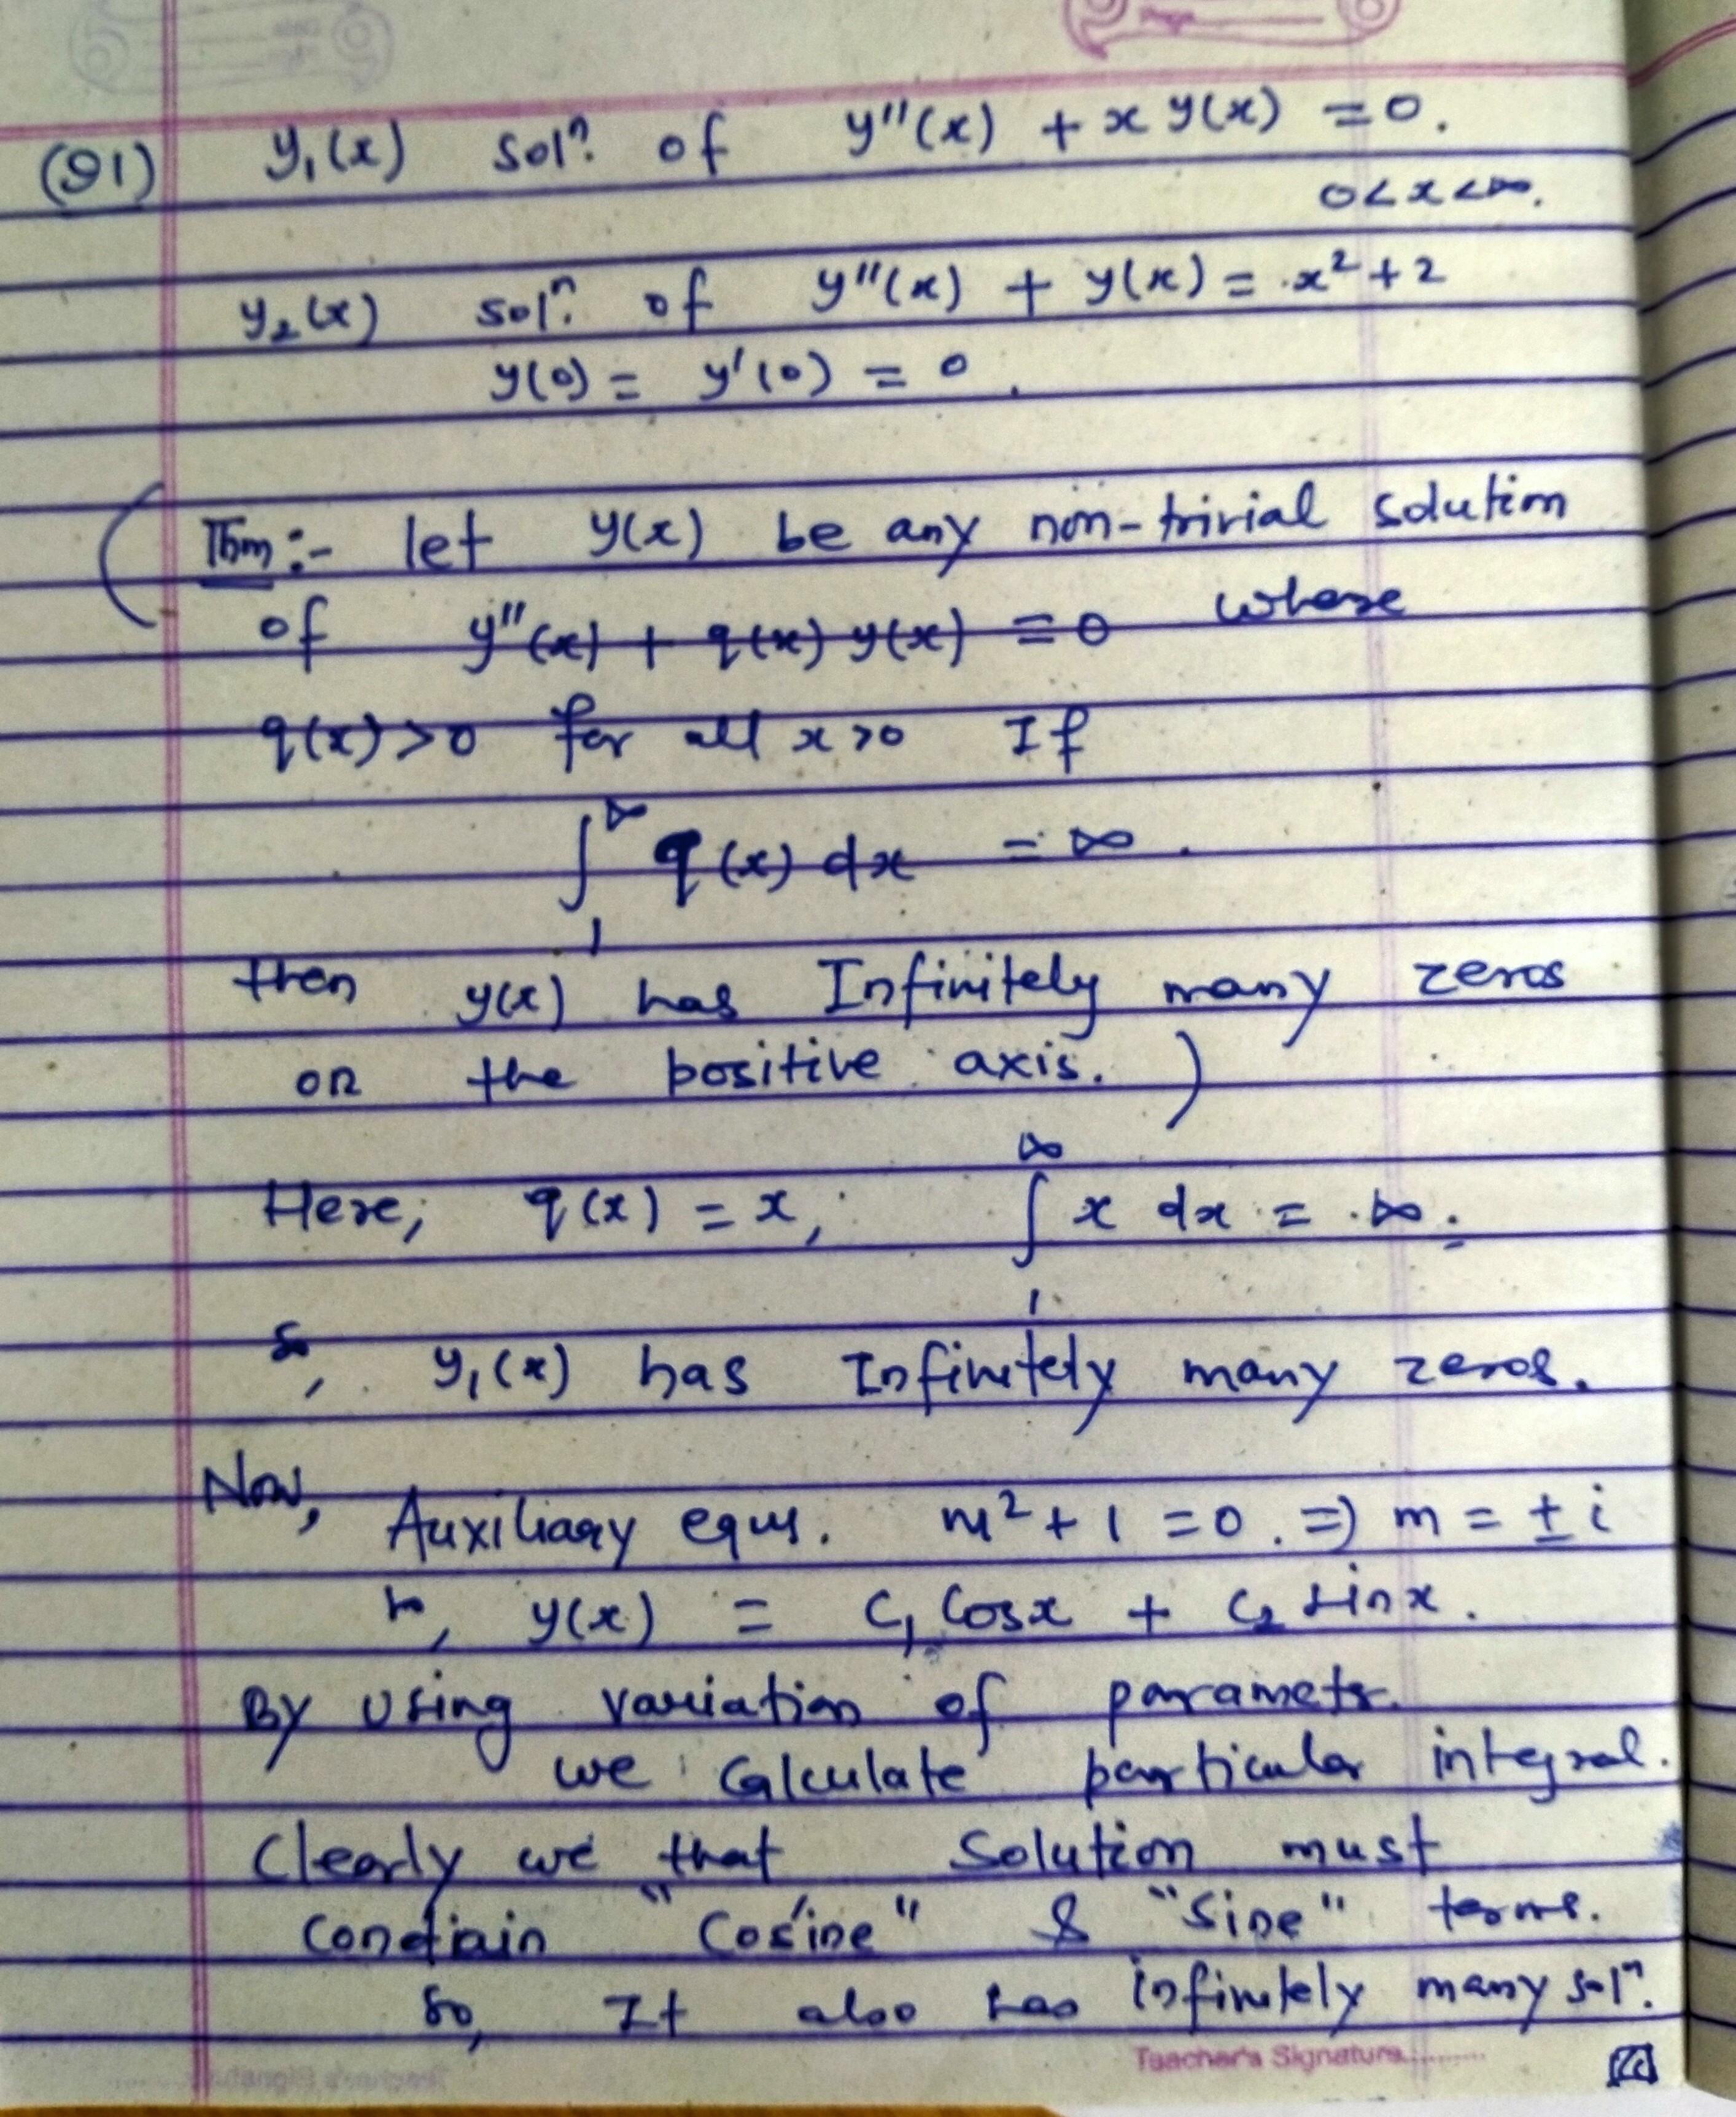 Page
(91) y₁(x) solⁿ. of y''(x) + x y(x) = 0.
0<x<∞.
y₂(x) solⁿ. of y''(x) + y(x) = x² + 2
y(0) = y'(0) = 0.
( Thm:- let y(x) be any non-trivial solution
of y''(x) + q(x) y(x) = 0 where
q(x)>0 for all x>0 If
∫₁^∞ q(x) dx = ∞.
then y(x) has Infinitely many zeros
on the positive axis. )
Here, q(x) = x, ∫₁^∞ x dx = ∞.
So, y₁(x) has Infinitely many zeros.
Now, Auxiliary equn. m² + 1 = 0. ⇒ m = ± i
so, y(x) = C₁ Cosx + C₂ sinx.
By using variation of parameter.
we Calculate particular integral.
Clearly we that Solution must
Contain "Cosine" & "Sine" terms.
So, It also has infinitely many solⁿ.
Teacher's Signature..........